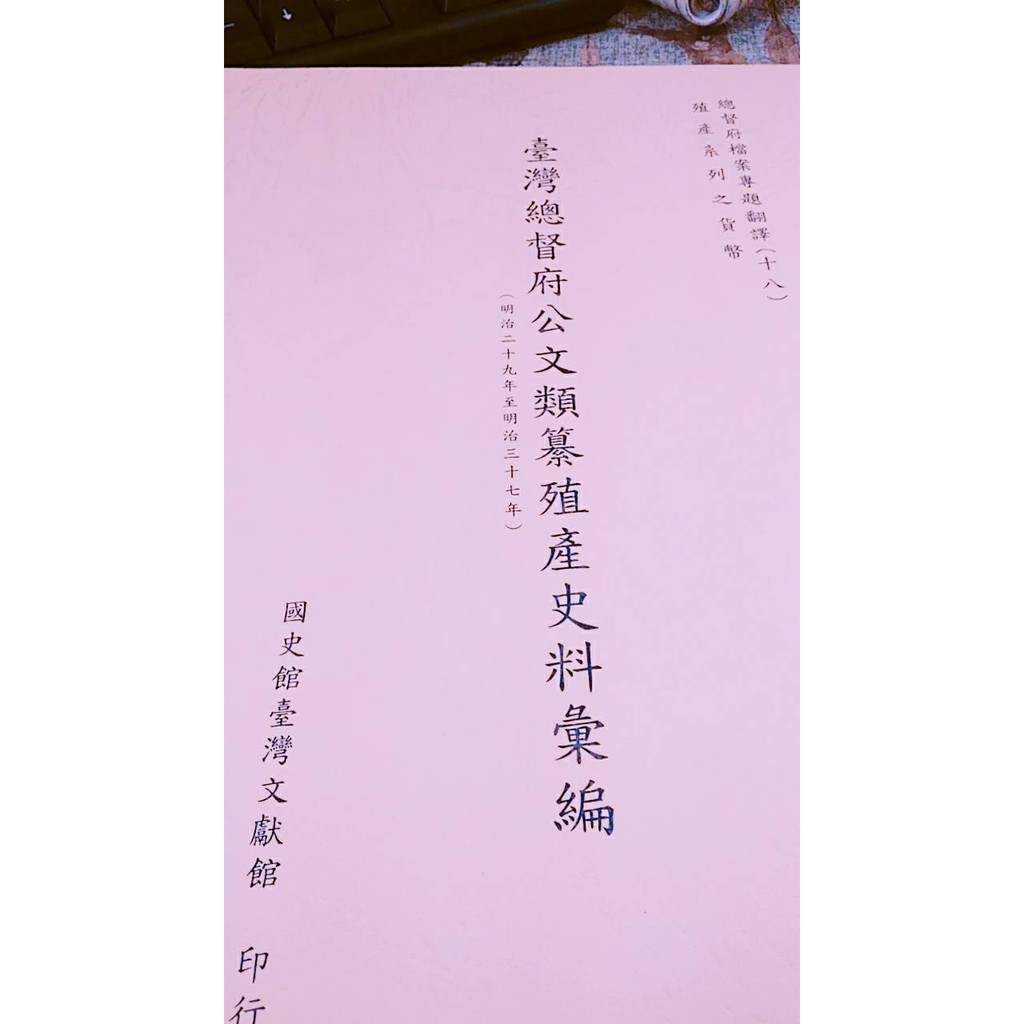 總督府檔案專題翻譯(十八)
殖產系列之貨幣
臺灣總督府公文類纂殖產史料彙編
(明治二十九年至明治三十七年)
國史館臺灣文獻館 印行